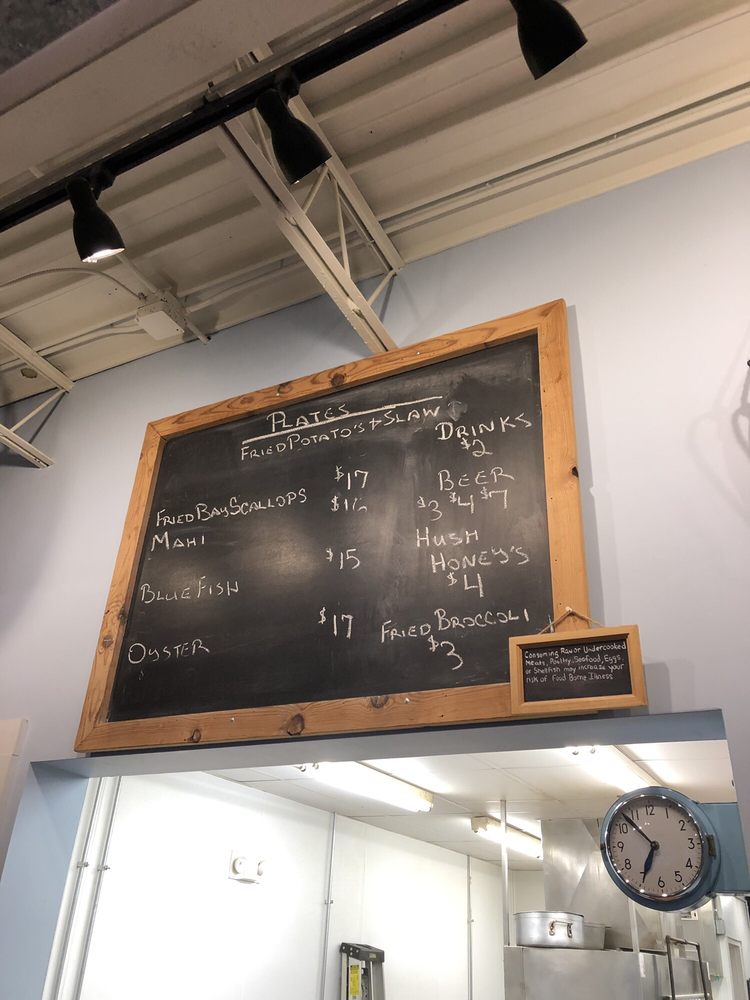 PLATES
FRIED POTATO'S + SLAW
FRIED BAY SCALLOPS $17
MAHI
BLUE FISH $15
OYSTER $17
DRINKS
$2
BEER
$3 $4 $7
HUSH
HONEY'S
$4
FRIED BROCCOLI
$3
Consuming Raw or Undercooked
Meats, Poultry, Seafood, Eggs,
or Shellfish may increase your
risk of Food Borne Illness
12
1
2
3
4
5
6
7
8
9
10
11